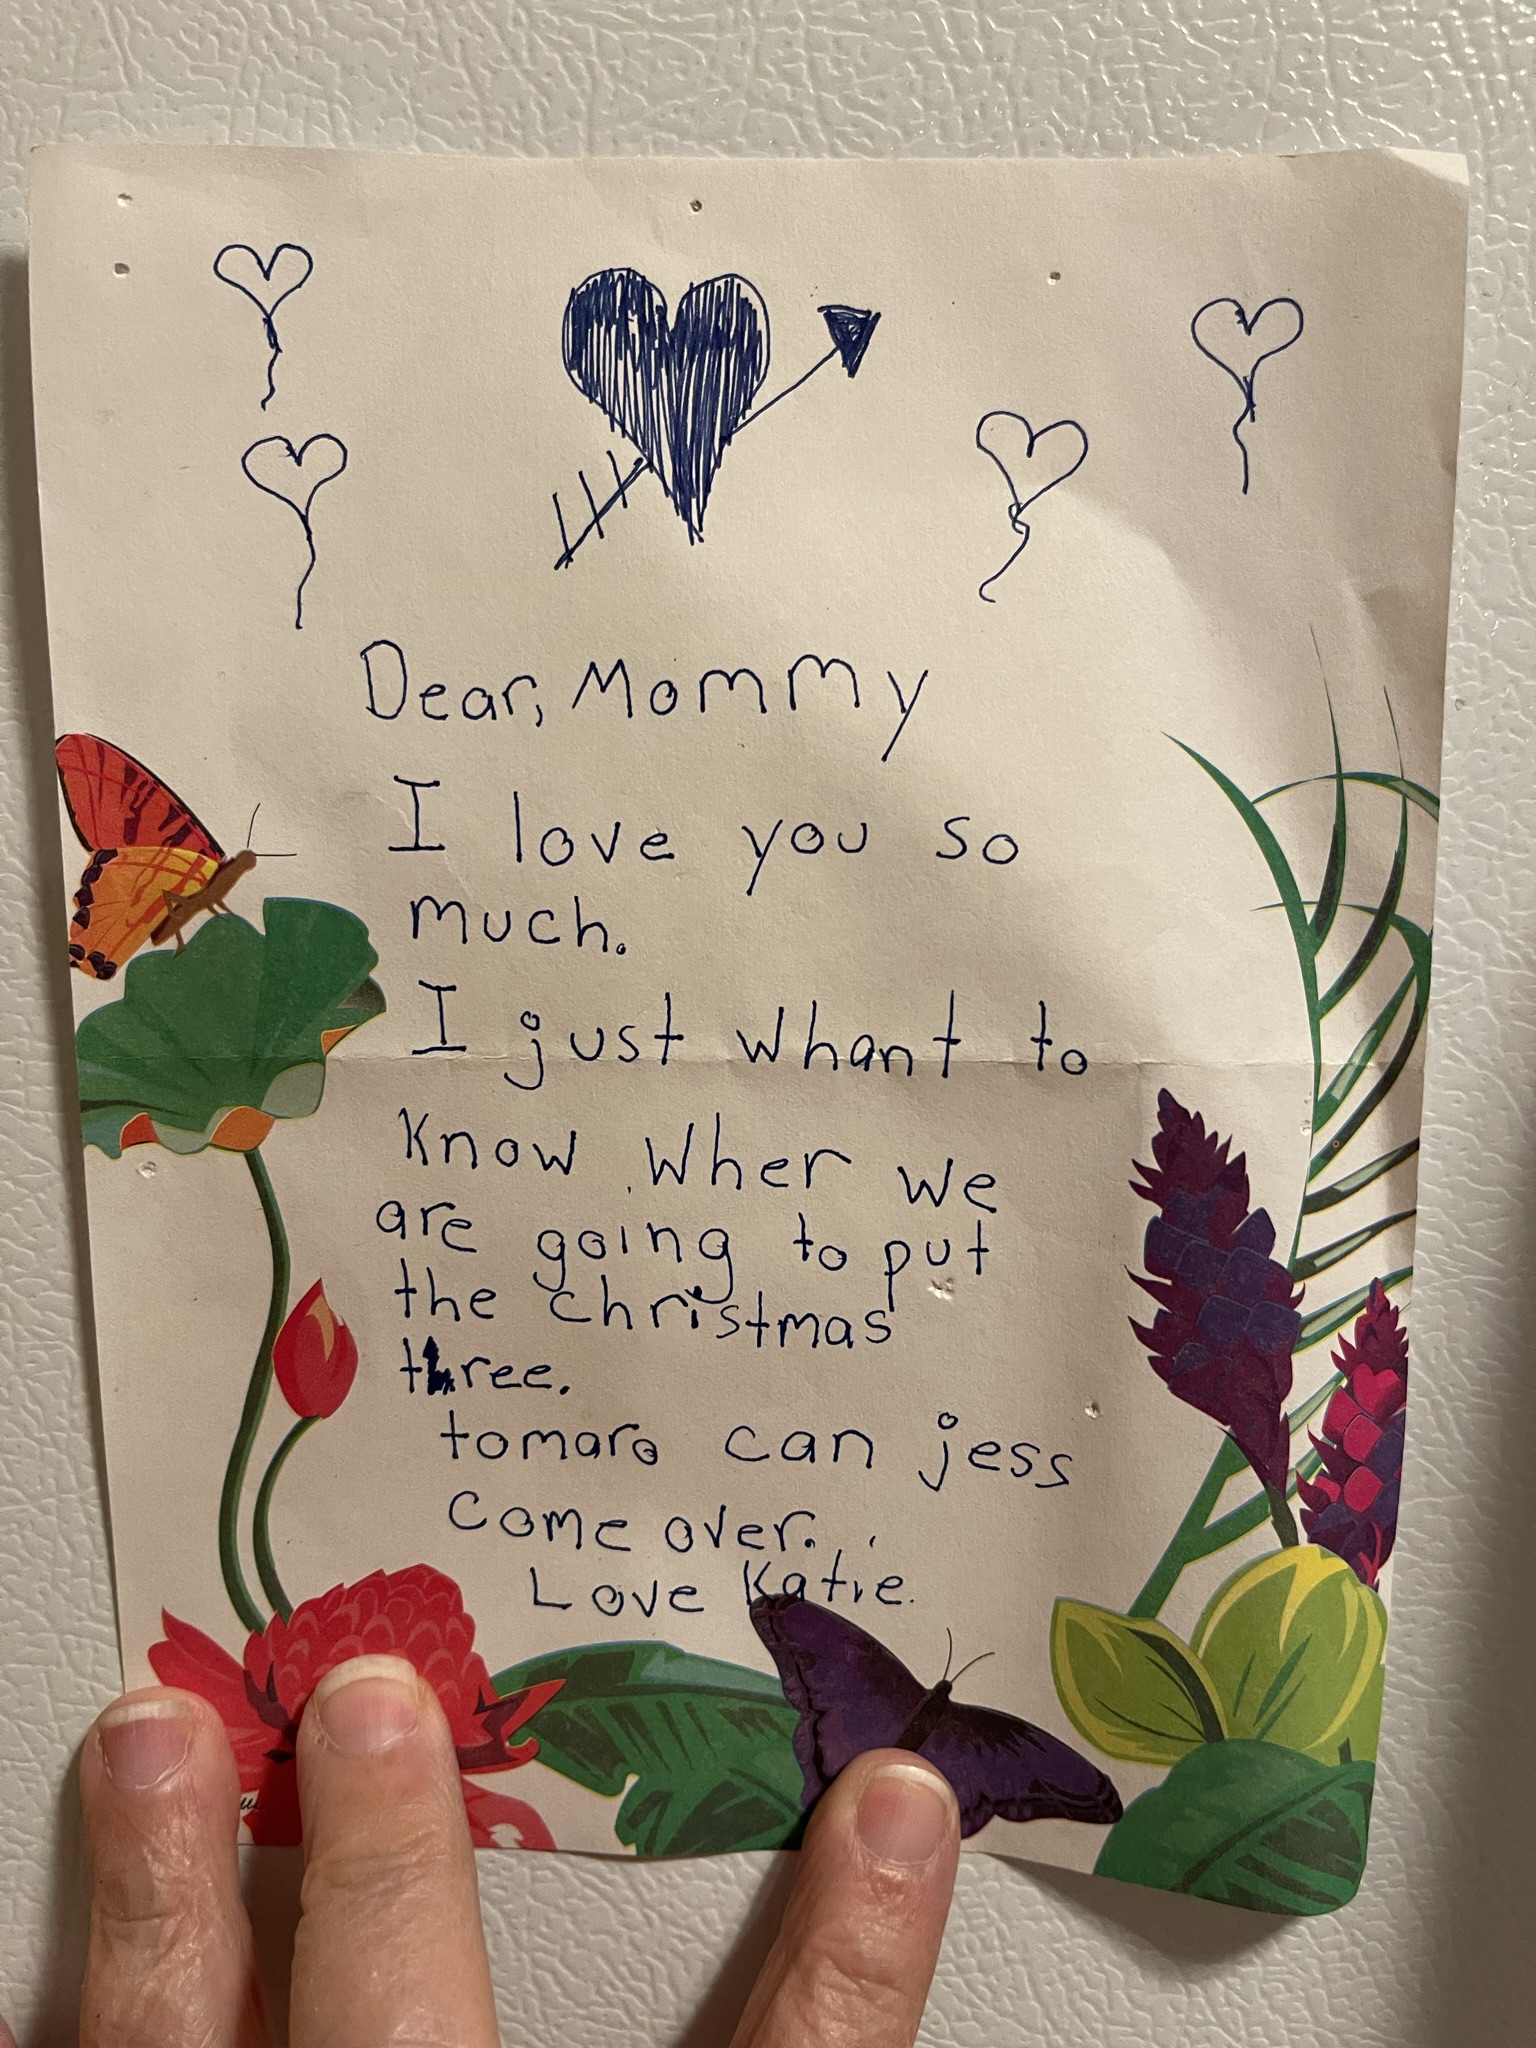 Dear, Mommy
I love you so
much.
I just whant to
Know Wher we
are going to put
the christmas
three.
tomaro can jess
come over.
Love Katie.